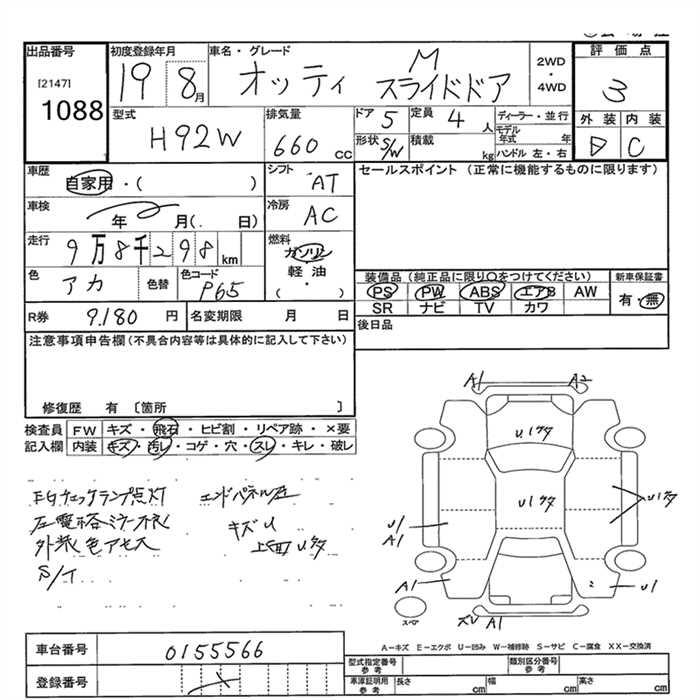 出品番号
[2147]
1088
初度登録年月
19 8月
車名・グレード
オッティ M スライドドア
2WD
・
4WD
評価点
3
型式
H92W
排気量
660 cc
ドア 5
定員 4 人
形状 S/W
積載 kg
ディーラー・並行
モデル年式 年
ハンドル 左・右
外装 内装
D C
車歴
自家用・( )
シフト
AT
車検
年 月( 日)
冷房
AC
走行
9万8千298km
燃料
ガソリン
軽油
( ・ )
色
アカ
色替
色コード
P65
R券 9.180 円
名変期限 月 日
セールスポイント (正常に機能するものに限ります)
装備品(純正品に限り〇をつけてください)
PS PW ABS エアB AW
SR ナビ TV カワ
新車保証書
有・無
後日品
注意事項申告欄(不具合内容等は具体的に記入して下さい)
修復歴 有 〔箇所 〕
検査員
記入欄
FW キズ・飛石・ヒビ割・リペア跡・×要
内装 キズ・汚レ・コゲ・穴・スレ・キレ・破レ
EGチェックランプ点灯
左電格ミラー不良
外装色アセ大
S/T
エンドパネル圧
キズU
上面U多
A1 A2
U1多
U1多
U1多
U1
A1
A1
U1
ズU A1
スペア
A-キズ E-エクボ U-凹み W-補修跡 S-サビ C-腐食 XX-交換済
車台番号 0155566
登録番号
型式指定番号
参考
類別区分番号
参考
車庫証明用
参考
長さ cm
幅 cm
高さ cm